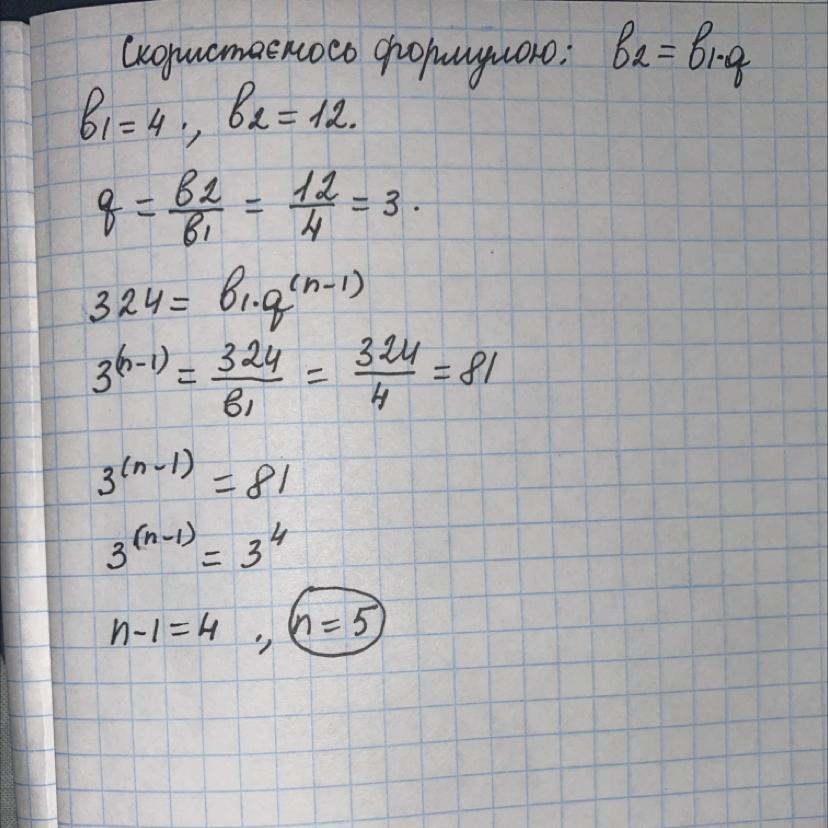 Скористаємось формулою: b2 = b1·q
b1 = 4 ., b2 = 12.
q = b2/b1 = 12/4 = 3.
324 = b1·q^(n-1)
3^(n-1) = 324/b1 = 324/4 = 81
3^(n-1) = 81
3^(n-1) = 3^4
n-1 = 4 ., n = 5